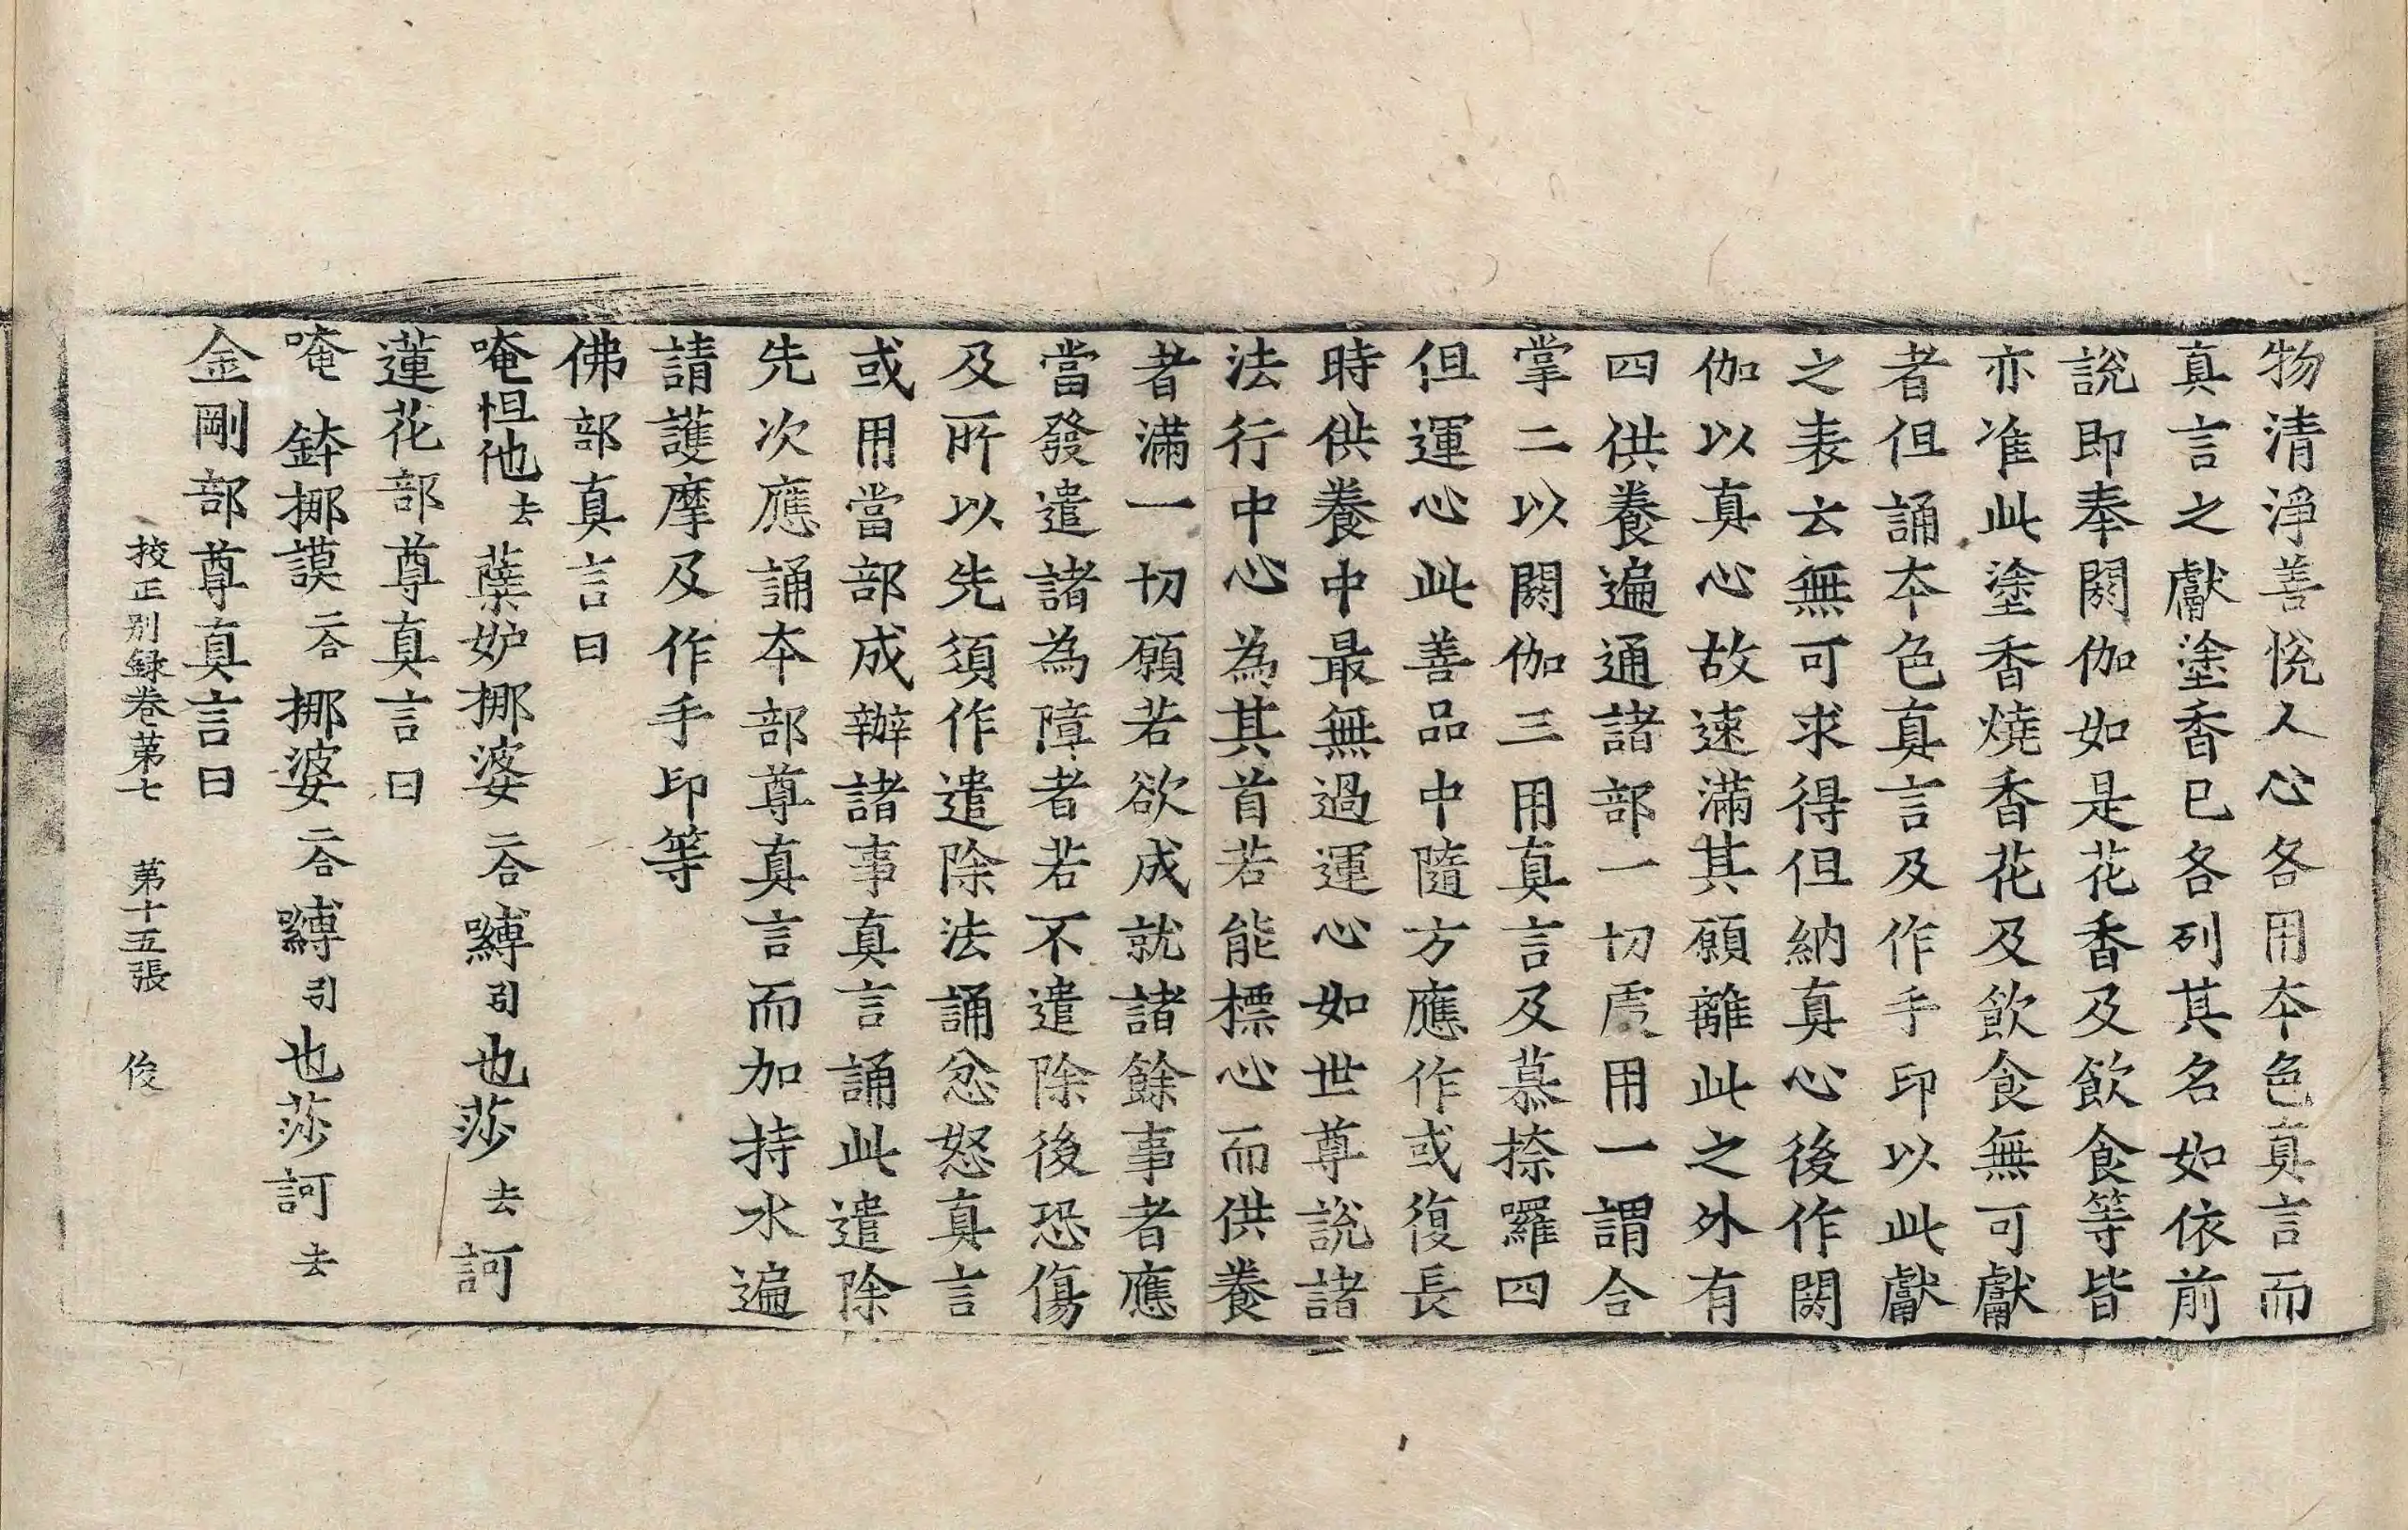 物清淨善悅人心各用本色真言而
真言之獻塗香已各列其名如依前
說即奉閼伽如是花香及飲食等皆
亦准此塗香燒香花及飲食無可獻
者但誦本色真言及作手印以此獻
之表云無可求得但納真心後作閼
伽以真心故速滿其願離此之外有
四供養遍通諸部一切處用一謂合
掌二以閼伽三用真言及慕捺囉四
但運心此善品中隨方應作或復長
時供養中最無過運心如世尊說諸
法行中心為其首若能標心而供養
者滿一切願若欲成就諸餘事者應
當發遣諸為障者若不遣除後恐傷
及所以先須作遣除法誦忿怒真言
或用當部成辦諸事真言誦此遣除
先次應誦本部尊真言而加持水遍
請護摩及作手印等
佛部真言曰
唵怛他去蘗妒挪婆二合嚩引也莎去訶
蓮花部尊真言曰
唵鉢挪謨二合挪婆二合嚩引也莎訶去
金剛部尊真言曰
挍正別錄卷苐七 苐十五張 俊